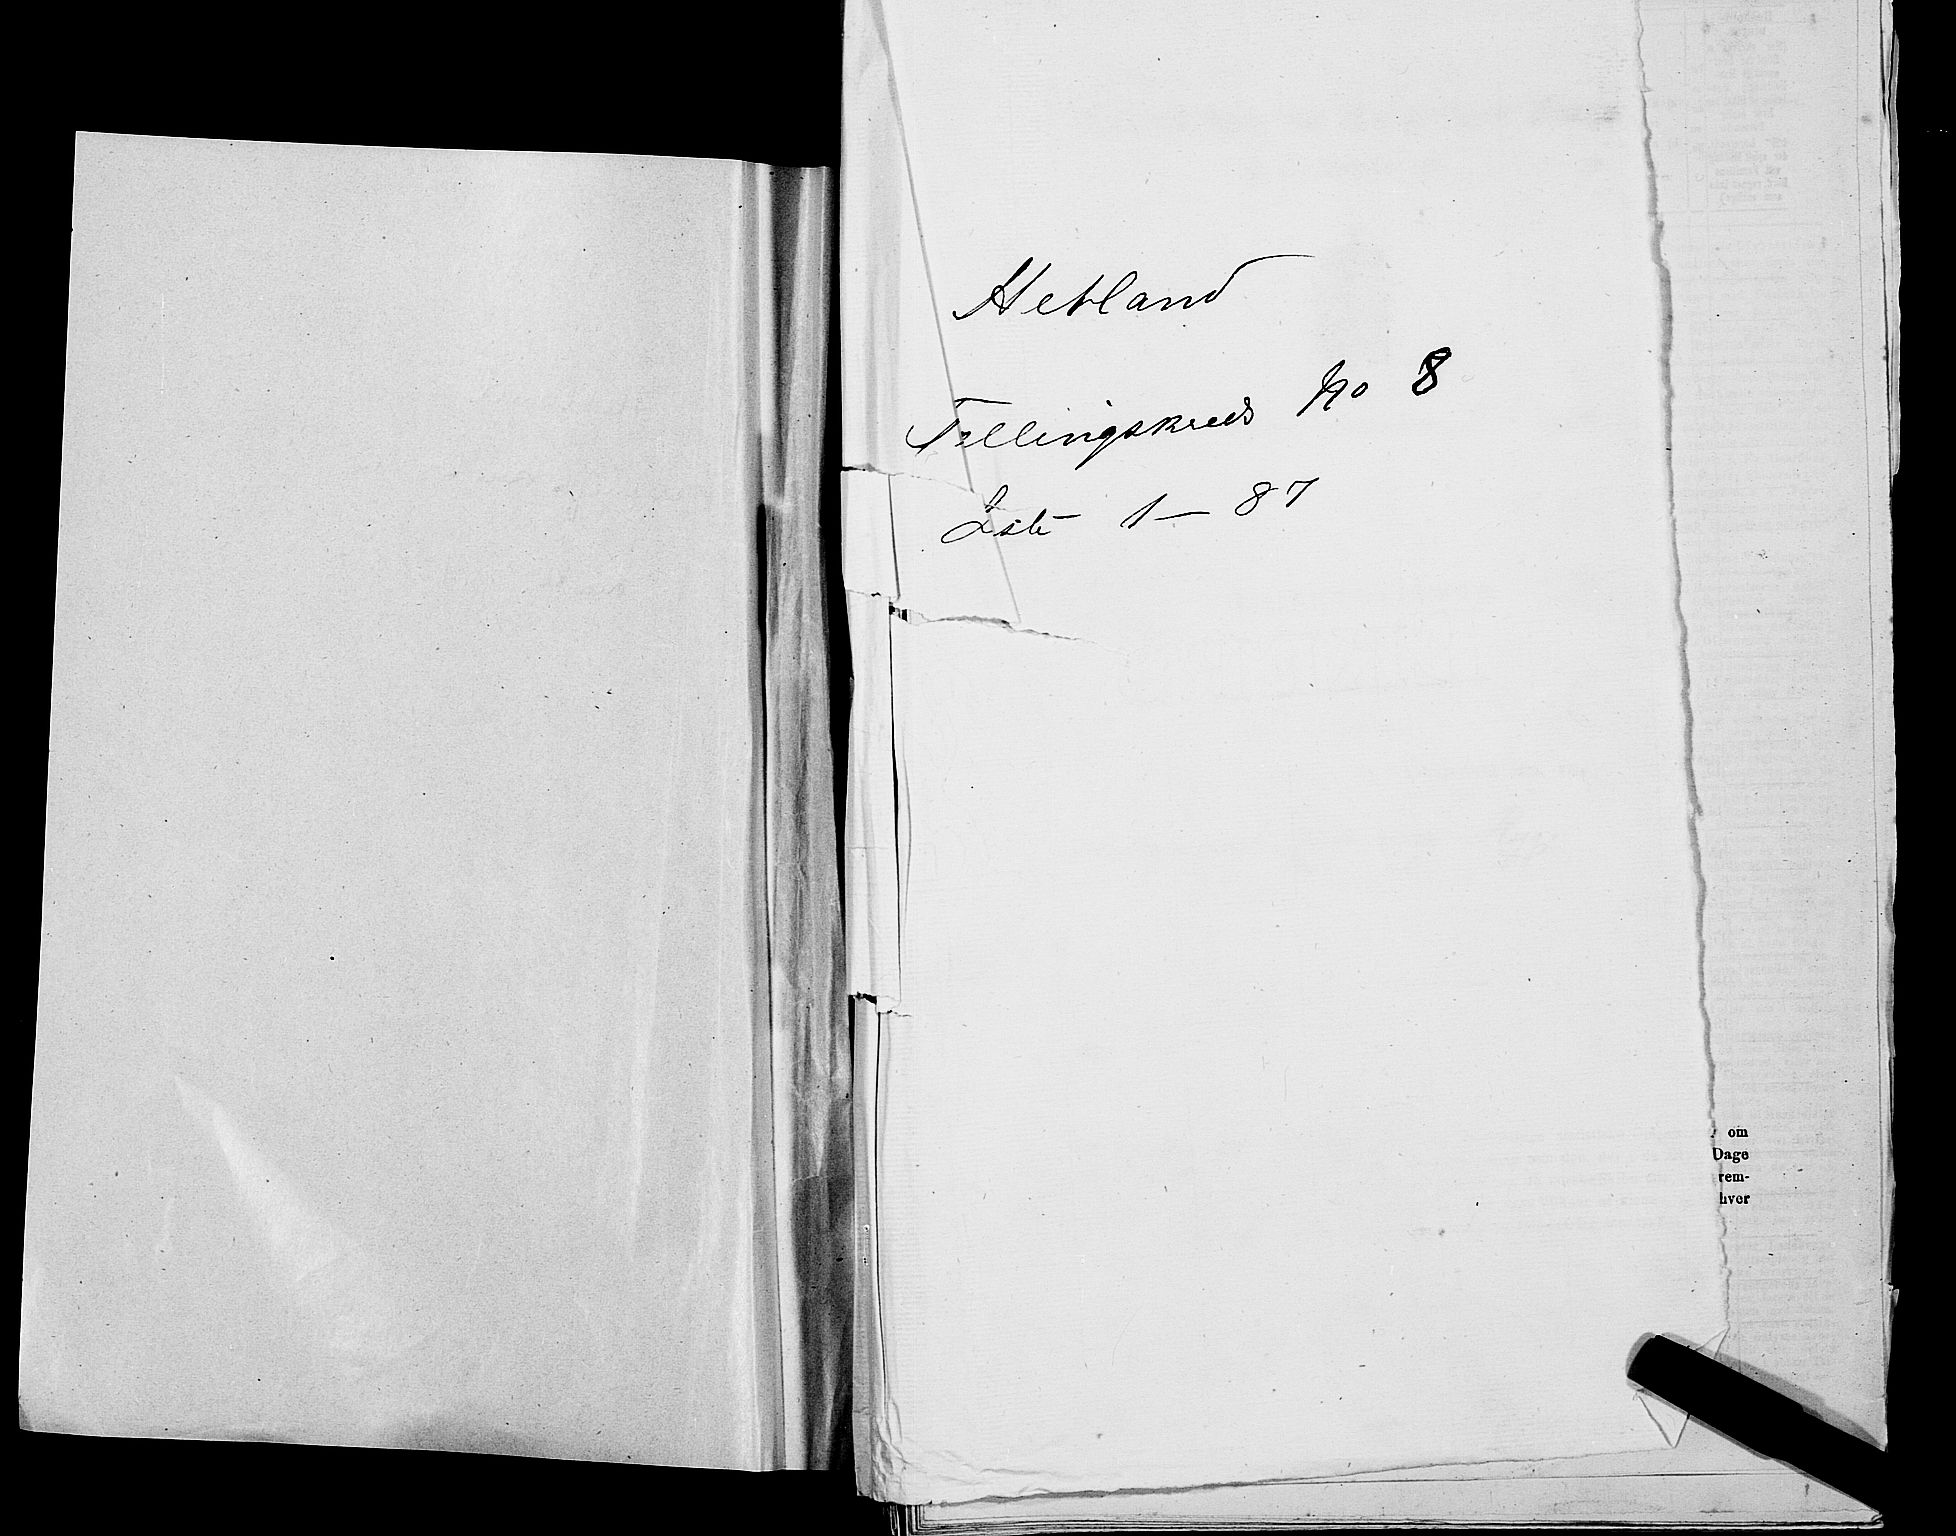 Hetland
Tellingskreds No 8
Liste 1 — 87
om
Dage
rem-
hver